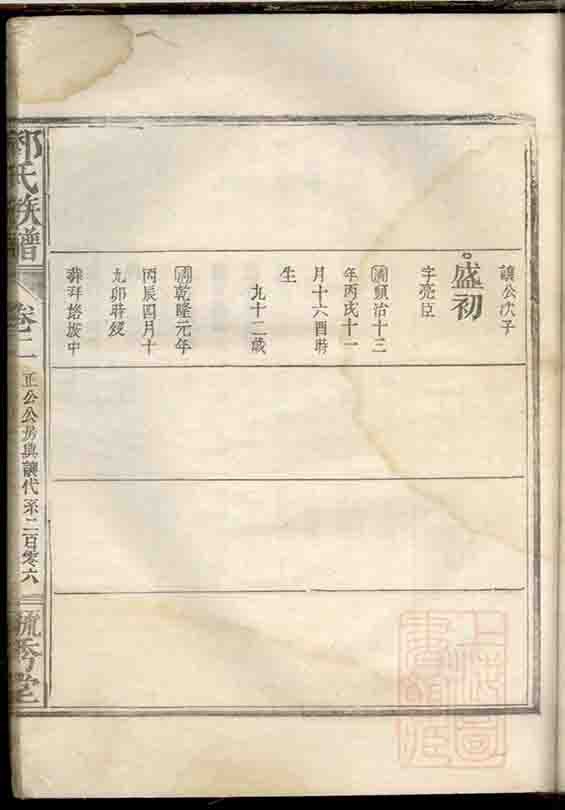 讓公次子
盛初
字亮臣
清順治十三
年丙戌十一
月十六酉時
生
九十二歲
清乾隆元年
丙辰四月十
九卯時歿
葬拜塔坡中
氏族譜
卷二
正公公房與讓代系二百零六
毓秀堂
上海圖書館藏